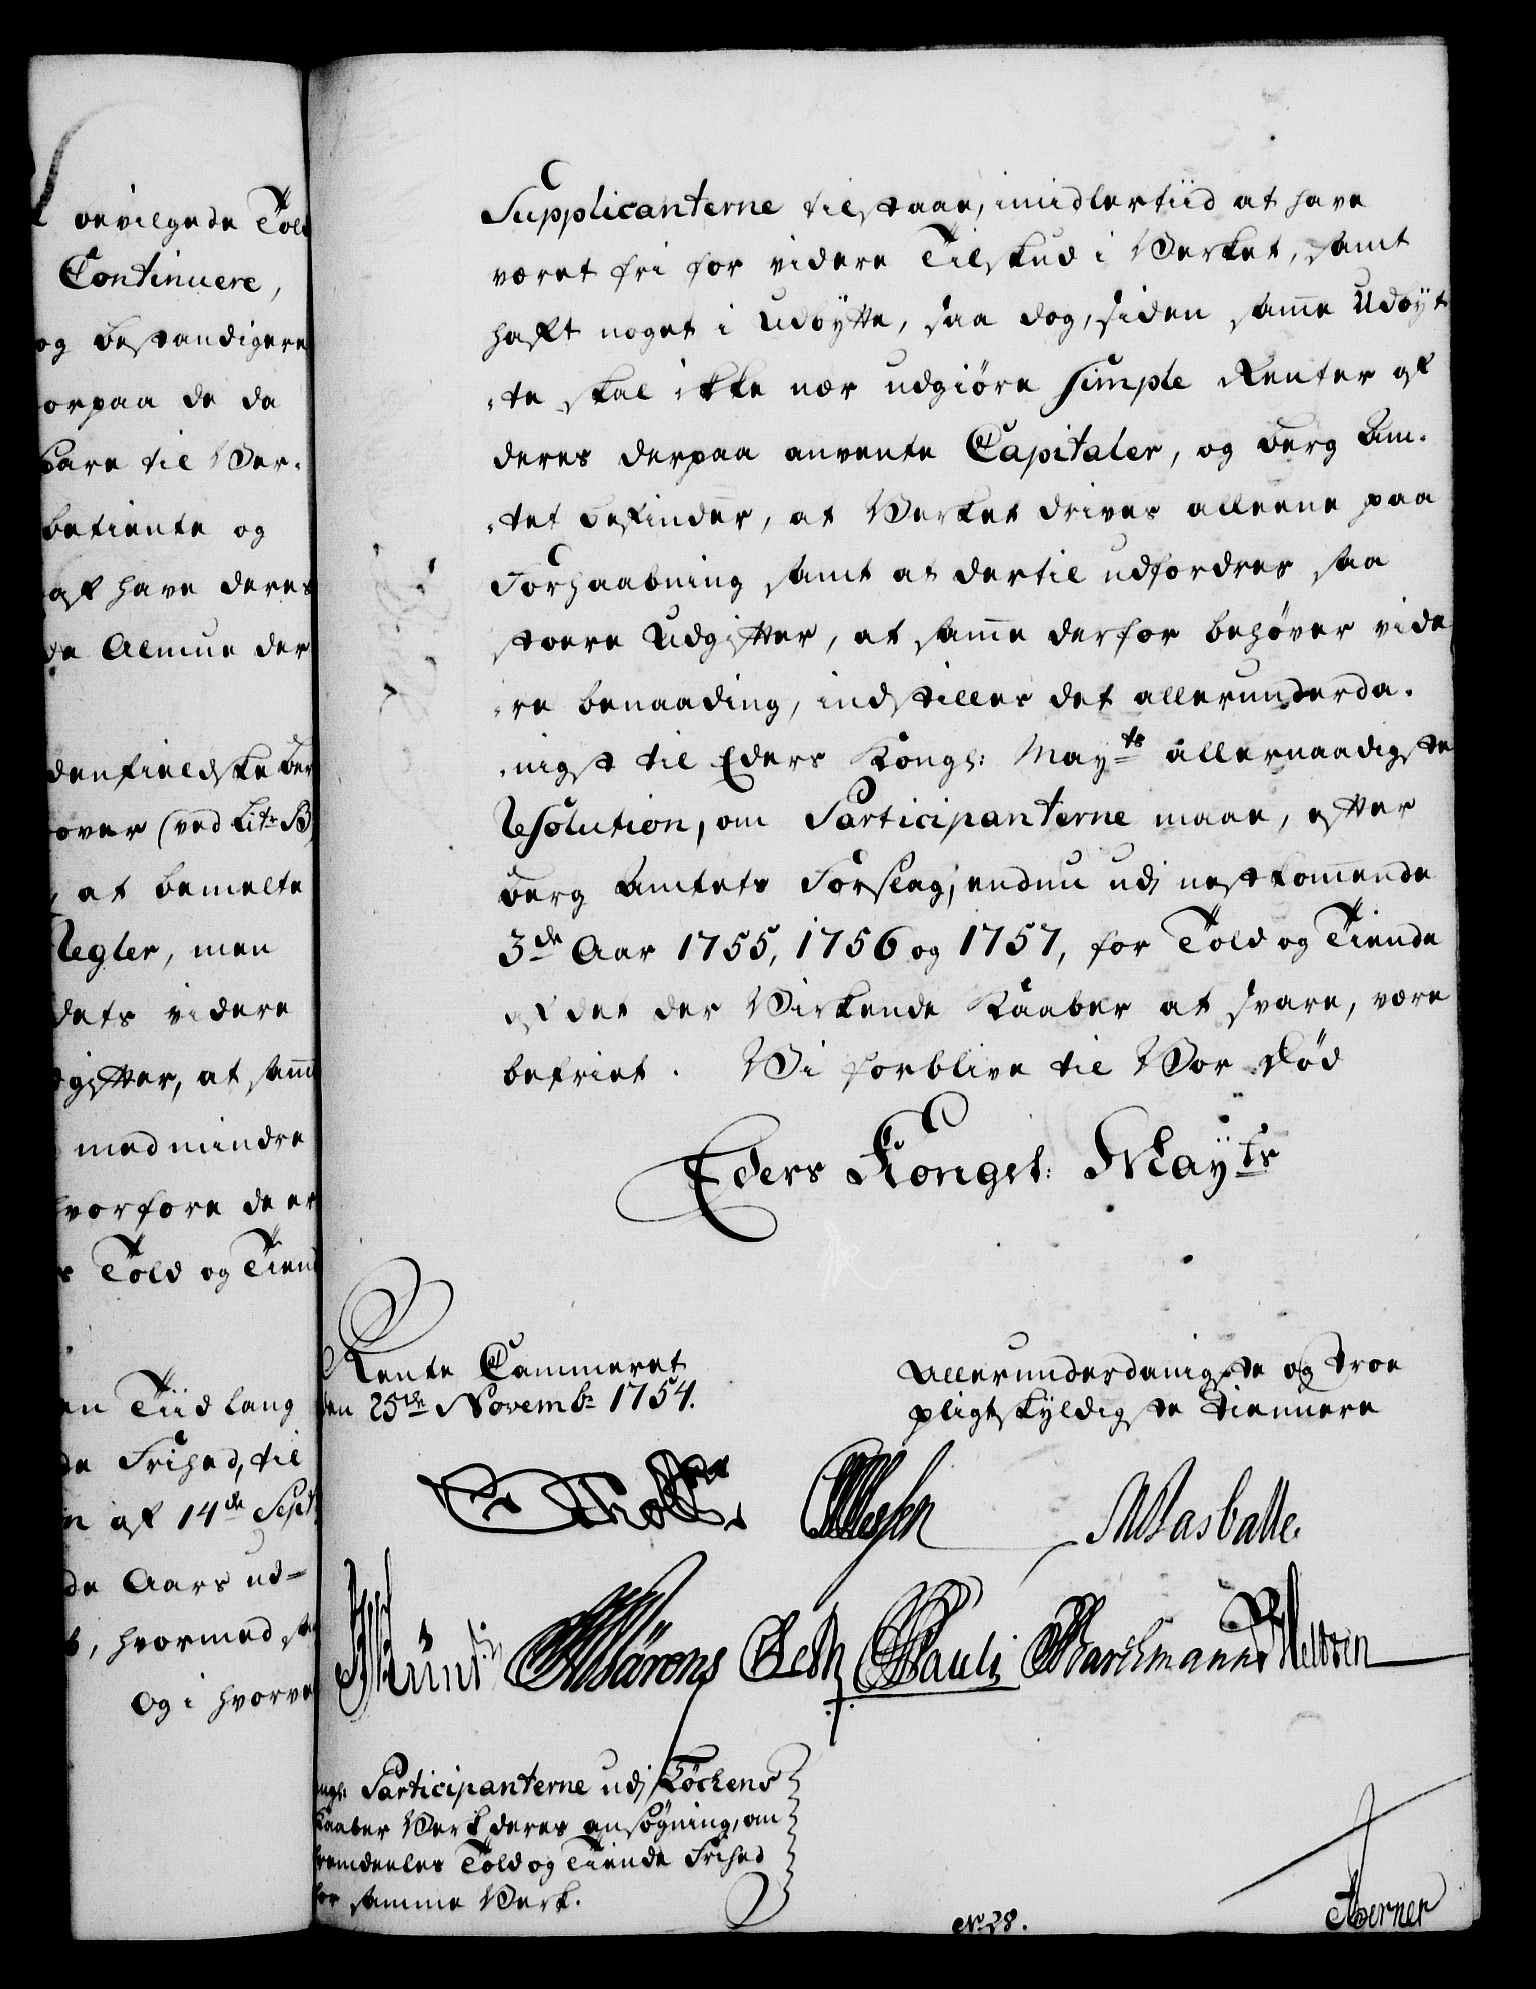 bevilgede Told
Continuere,
og bestandigere
orpaa de da
bare til Ver-
betiente og
af have deres
de Almue der
denfieldske Ber
over (ved Litr B
at bemelte
Regler, men
dets videre
dgifter, at samme
medmindre
hvorfore de er
Told og Tiend
en Tiid lang
de Frihed, til
af 14de Septr
de Aars ud-
, hvormed
Og i hvorve
Supplicanterne tilstaae, imidlertiid at have
været fri for videre Tilskud i Verket, samt
haft noget i Udbytte, saa dog, siden samme Udbyt
-te skal ikke nær udgiøre simple Renter af
deres derpaa anvente Capitaler, og Berg Am-
-tet befinder, at Verket drives alleene paa
Forhaabning samt at dertil udfordres saa
stoere Udgifter, at samme derfor behøver vide
-re benaading, indstilles det allerunderda-
-nigst til Eders Kongl: Mayts allernaadigste
Resolution, om Participanterne maae, efter
Berg Amtets Forslag, endnu udj nestkommende
3de Aar 1755, 1756 og 1757, for Told og Tiende
af det der Virkende Kaaber at svare, være
befriet. Vi forblive til Vor Død
Eders Kongel: Mayts
Rente Cammeret
den 25de Novembr 1754.
Allerunderdanigste og troe
pligtskyldigste tiennere
Holst
Pauli
ngl: Participanterne udj Løckens
Kaaber Verk deres ansøgning, om
fremdeeles Told og Tiende Frihed
for samme Verk.
No 28.